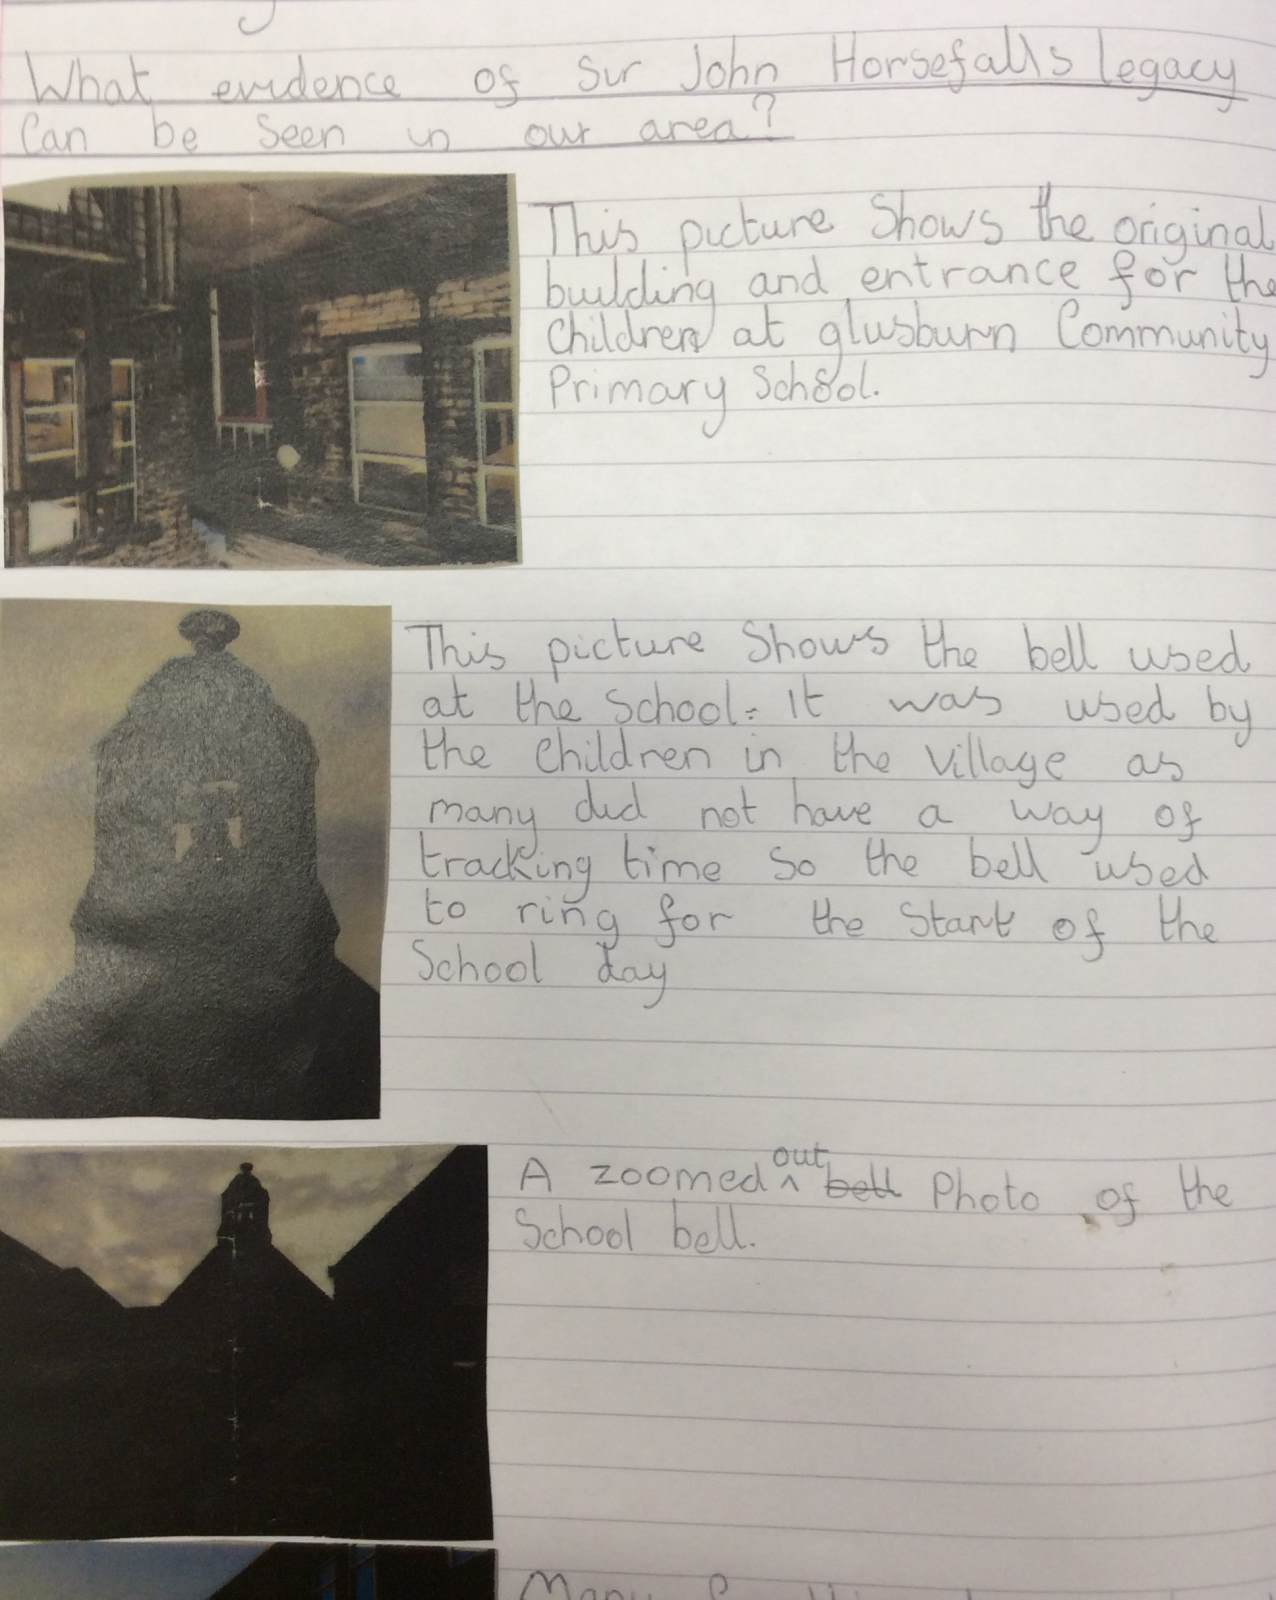 What evidence of Sir John Horsefalls legacy
Can be Seen in our area?
This picture Shows the original
building and entrance for the
Children at glusburn Community
Primary School.
This picture Shows the bell used
at the School. It was used by
the children in the village as
many did not have a way of
tracking time so the bell used
to ring for the Start of the
School day
A zoomed out bell Photo of the
School bell.
Many